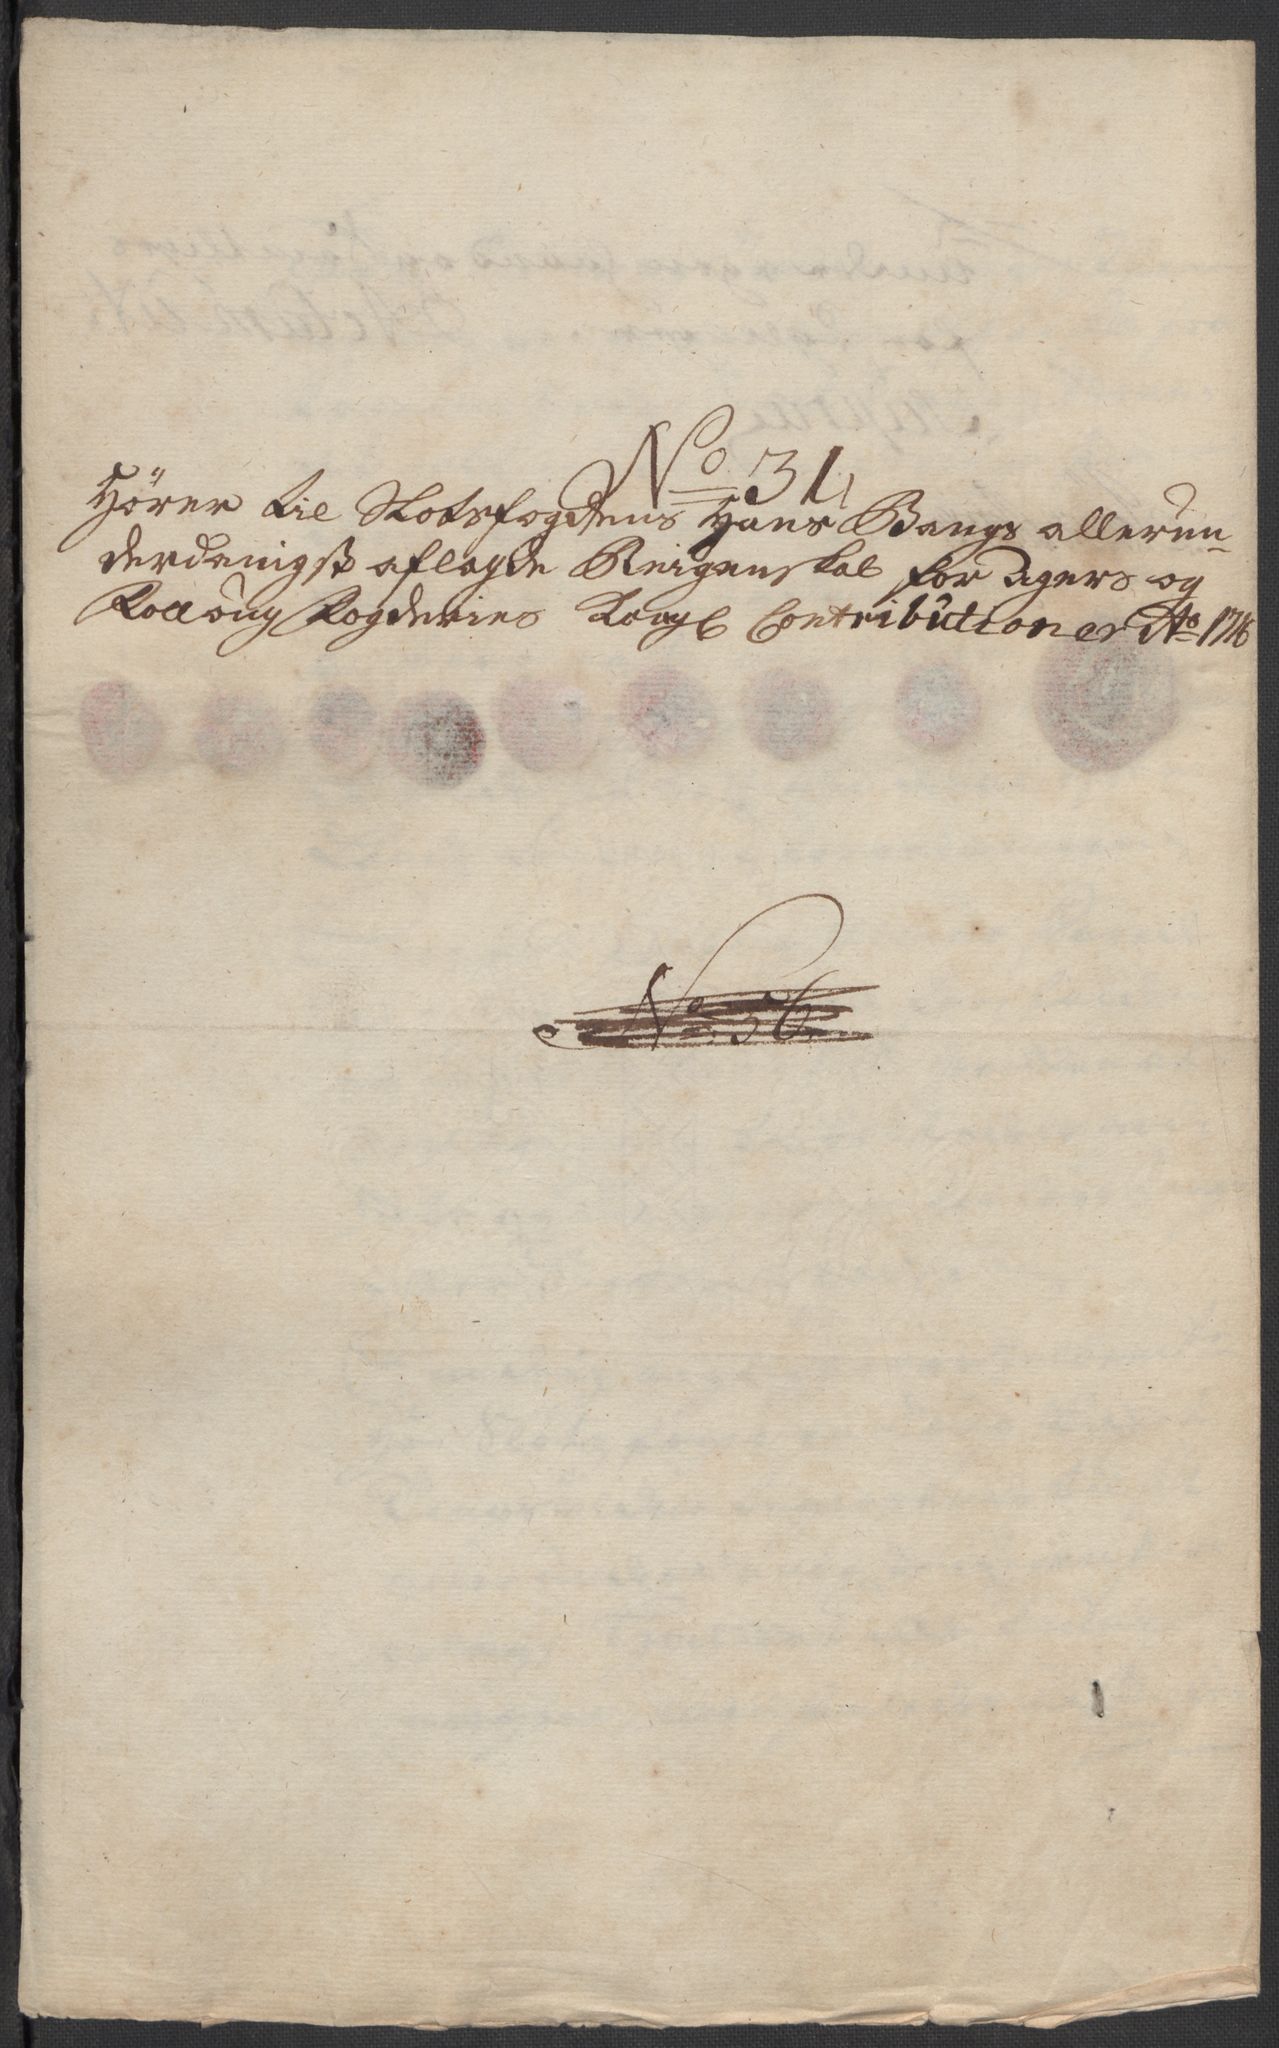 No 31
Hörer til Slotsfogdens Hans Bangs allerun-
derdanigst aflagde Reigenskab for Agers og
Follaug Fogderies Kongl Contributioner Ao 1716
No 56